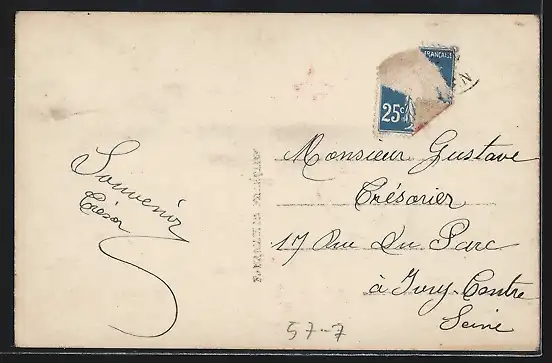 FRANÇAISE
25c
N
Souvenir
Trésor
Monsieur Gustave
Trésorier
17 Rue Du Parc
à Ivry Centre
Seine
57-7